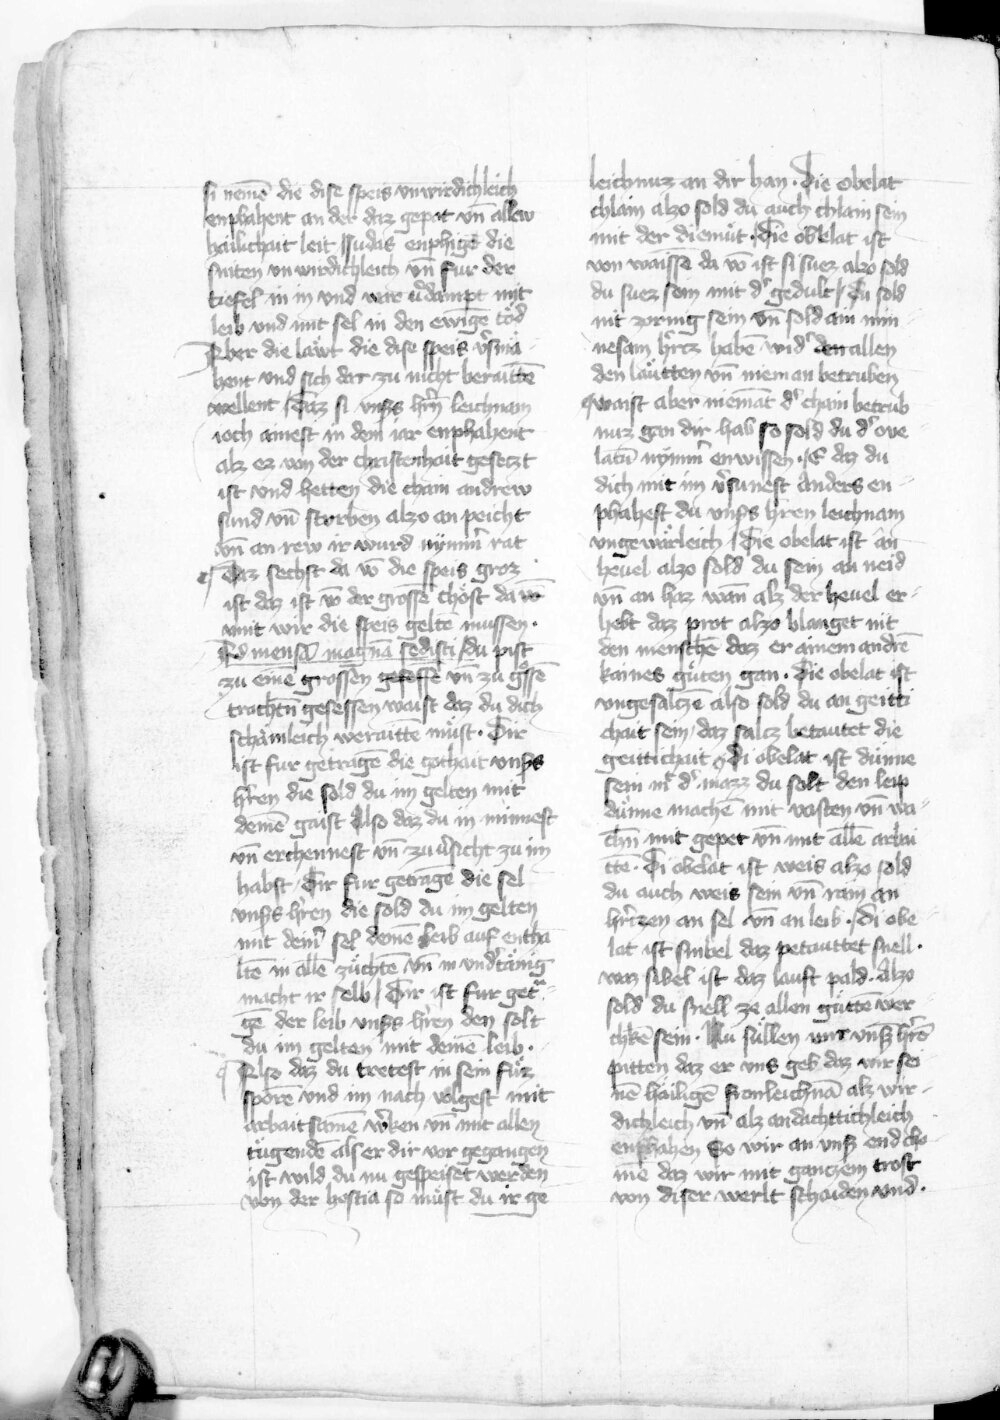 si nemē die dise speis vnwirdichleich
enphahent an der daz gepet vn̄ allew
hailichait leit Judas enphige die
sniten vn wirdichleich vn̄ fur der
tiefel in in vnd war v̓dampt mit
leib vnd mit sel in den ewigē tod
Aber die lawt die dise speis v̓sma
hent vnd sich dar zu nicht beraittē
wellent / Daz si vnsˢs hr̄n leichnam
ioch ainest in dem iar enphahent
alz ez von der christenhait gesetzt
ist vnd hetten die chain andrew
sund vn̄ storben alzo an peicht
vn̄ an rew ir wurd nymm̓ rat
Daz sechst da vō die speis groz
ist daz ist vō der grossē chost da vō
mit wir die speis geltē mussen ·
Ad mensā magnā sedisti / du pist
zu einē grossen gesesse vn̄ zu gͦssē
trachtn̄ gesessen waist daz du dich
schamleich weraittē must · Dir
ist fur getragē die gothait vnsˢs
hr̓ren die sold du im gelten mit
demē gaist Also daz du in minnest
vn̄ erchennest vn̄ zu v̓sicht zu im
habst / Dir fur getragē die sel
vnsˢs hr̓ren die sold du im gelten
mit deim̓ sel demē leib auf entha
ltē in allē zuchtē vn̄ in vnd̓tanig
macht ir selb / Dir ist fur getᵃ
gē der leib vnsˢs hr̓ren den solt
du im gelten mit deinē leib ·
Also daz du tretest in sein fuz
sporē vnd im nach volgest mit
arbaitsamē w̓ken vn̄ mit allen
tugendē als er dir vor gegangen
ist wild du nu gespeiset werden
von der hostia so must du ir ge
leichnuz an dir han · Die obelat
chlain alzo sold du auch chlain sein
mit der diemut · Die obelat ist
von waisse da vō ist si suez alzo sold
du suez sein mit d̓ gedult / Du sold
nit zornig sein vn̄ sold ain min
nesam hr̓cz habē wid̓ den allen
den lautten vn̄ nieman betruben
waist aber niemāt d̓ chain betrub
nuz gan dir hab so sold du d̓ ove
latū nymm̓ enwissen · E daz du
dich mit im v̓sunest Anders en
phahest du vnsˢs hr̓ren leichnam
vngewarleich / Die obelat ist an
hevel alzo sold du sein an neid
vn̄ an haz wan̄ alz der hevel er
hebt daz prot alzo blanget nit
den menschē daz er ainem andrē
kaines guten gan · Die obelat ist
vngesalczē also sold du an geitti
chait sein / daz salcz betautet die
geittichait Di obelat ist dunne
sein in̓ d̓ mazz du solt den leip
dunne machē mit vasten vn̄ wa
chn̄ mit gepet vn̄ mit allē arbai
ttē · Di obelat ist weis alzo sold
du auch weis sein vn̄ rain an
hr̓czen an sel vn̄ an leib · Di obe
lat ist sinbel daz petauttet snell ·
waz sibel ist daz lauft pald · Alzo
sold du snell ze allen guttē wer
chē sein · Nu sullen wir vnsˢ hr̓rē
pitten daz er vns geb daz wir sei
nē hailigē fronleichnā alz wir
dichleich vn̄ alz andachttichleich
enphahen So wir an vnsˢ end cho
mē daz wir mit ganczem trost
von diser werlt schaiden vnd ·